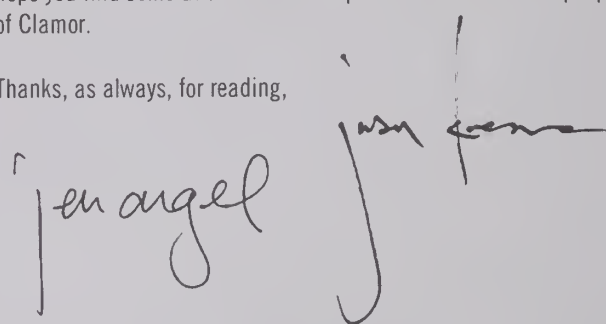 of Clamor.
Thanks, as always, for reading,
jen angel
jason